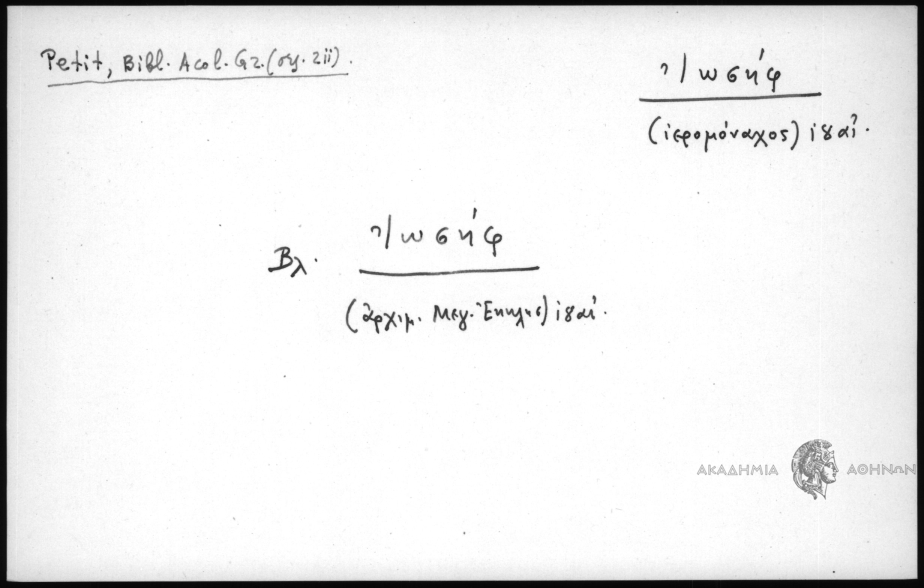 Petit, Bibl. Acol. Gr. (σελ. 211).
Ἰωσήφ
(ἱερομόναχος)
Βλ. Ἰωσήφ
(ἀρχιμ. Μεγ. Ἐκκλης)
ΑΚΑΔΗΜΙΑ ΑΘΗΝΩΝ